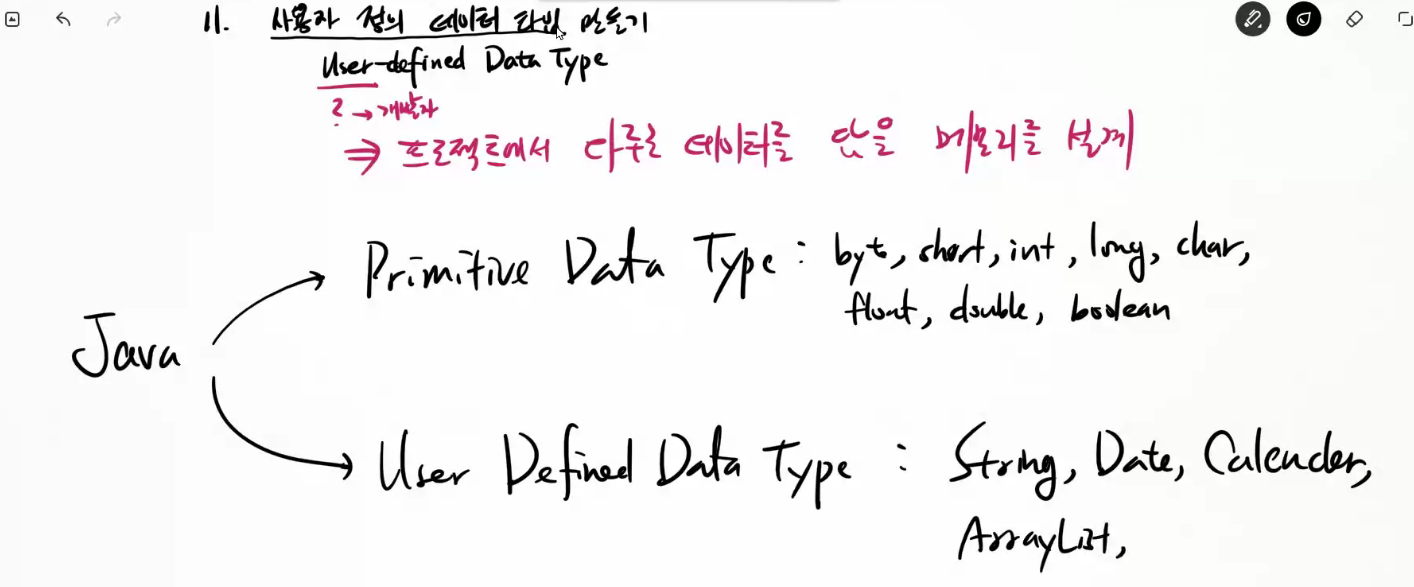 11. 사용자 정의 데이터 타입 만들기
User-defined Data Type
? → 개발자
⇒ 프로젝트에서 다루는 데이터를 담을 메모리를 설계
Java
Primitive Data Type : byte, short, int, long, char,
float, double, boolean
User Defined Data Type : String, Date, Calender,
ArrayList,